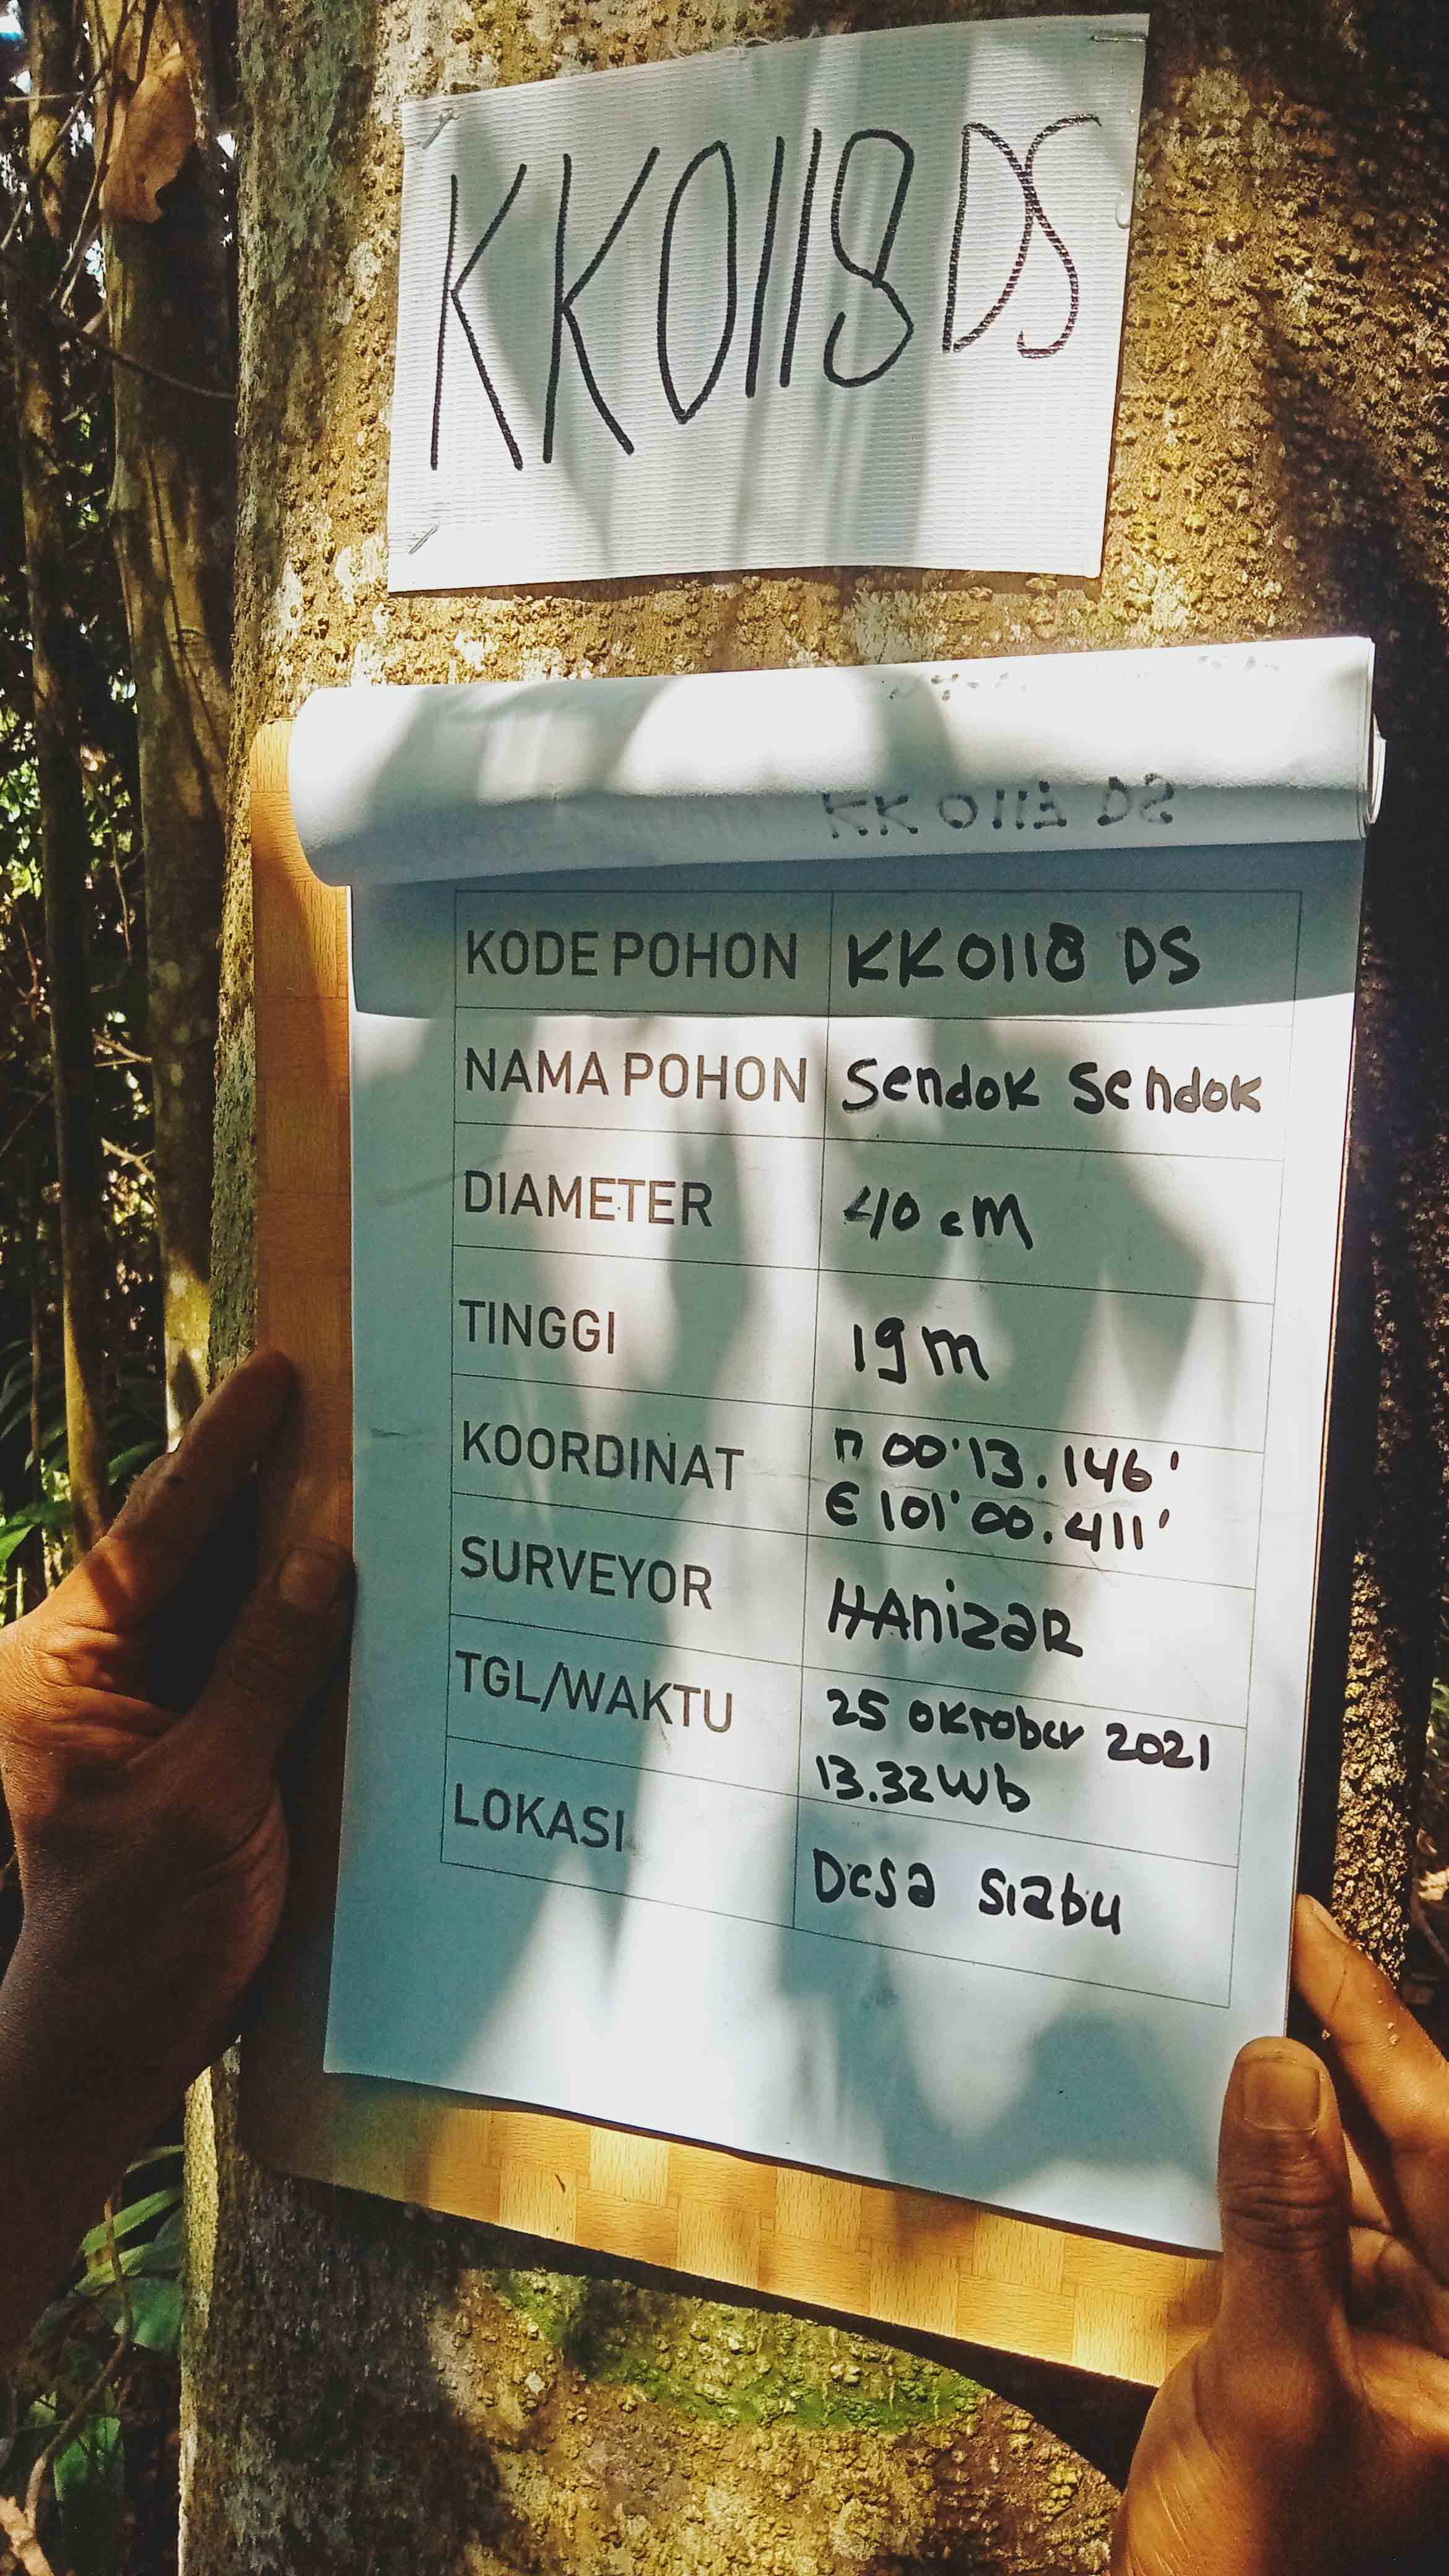 KK0118 DS
KK 0117 DS
KODE POHON KK0118 DS
NAMA POHON Sendok Sendok
DIAMETER 40 cm
TINGGI 19 m
KOORDINAT n 00'13.146'
E 101'00.411'
SURVEYOR HAnizaR
TGL/WAKTU 25 oktober 2021
13.32 Wb
LOKASI Desa Siabu